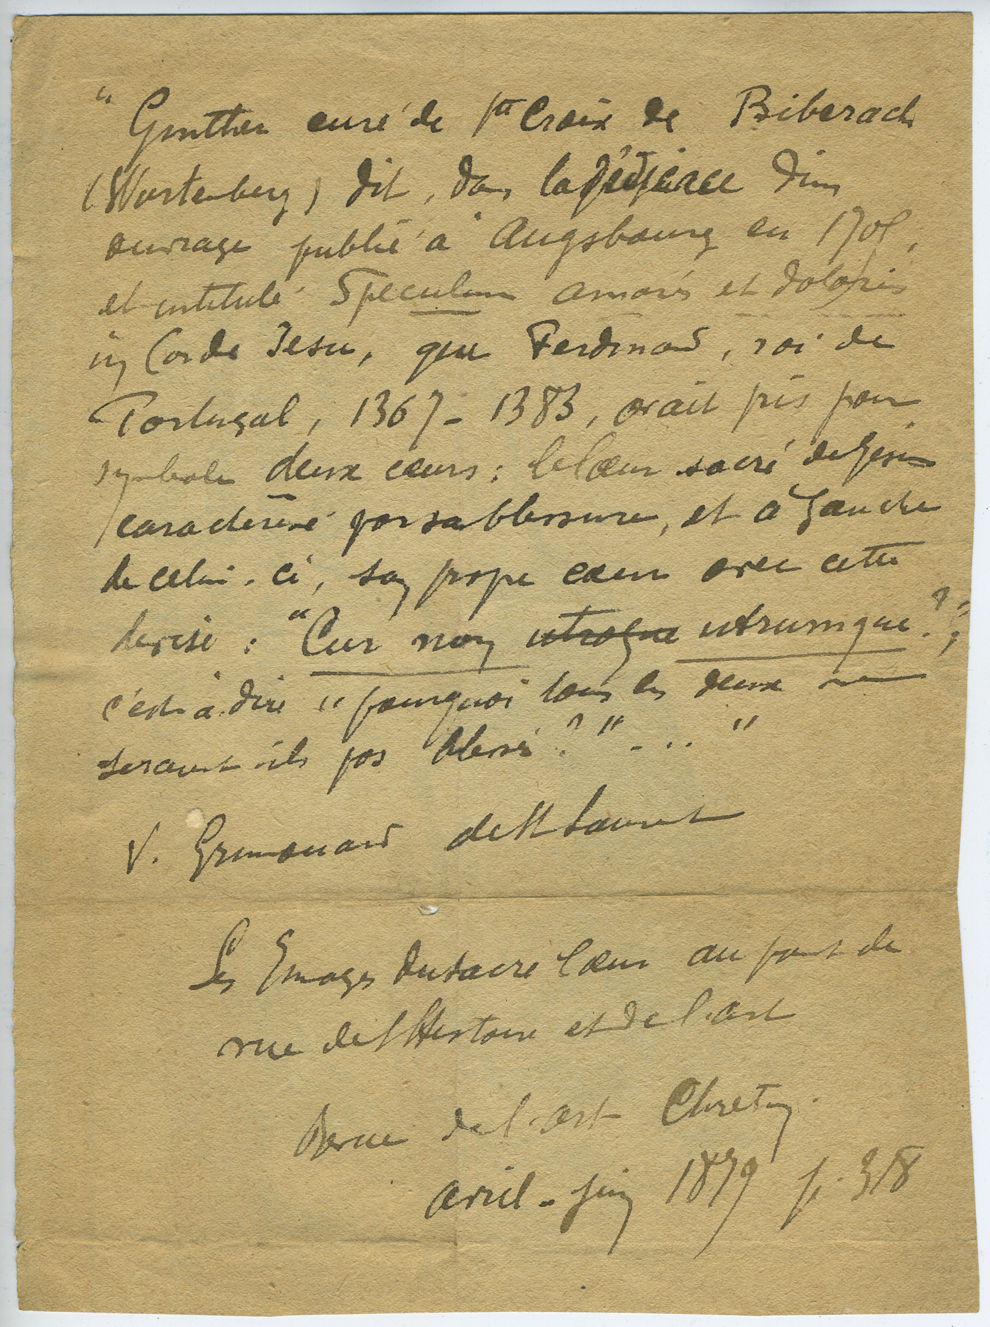 " Gunther curé de Ste Croix de Biberach
(Wurtenberg) dit, dans la préface d'un
ouvrage publié à Augsbourg en 1705,
et intitulé Speculum amoris et doloris
in Corde Jesu, que Ferdinand, roi de
Portugal, 1367 - 1383, avait pris pour
symbole deux cœurs : le Cœur sacré de Jésus
caractérisé par sa blessure, et à gauche
de celui-ci, son propre cœur avec cette
devise : "Cur non utroque utrumque ?" ;
c'est-à-dire "pourquoi tous les deux ne
seraient-ils pas blessés ?" ... "
V. Grimouard de St Laurent
Les Images du Sacré Cœur au point de
vue de l'Histoire et de l'art
Revue de l'art Chrétien.
avril - juin 1879 p. 318